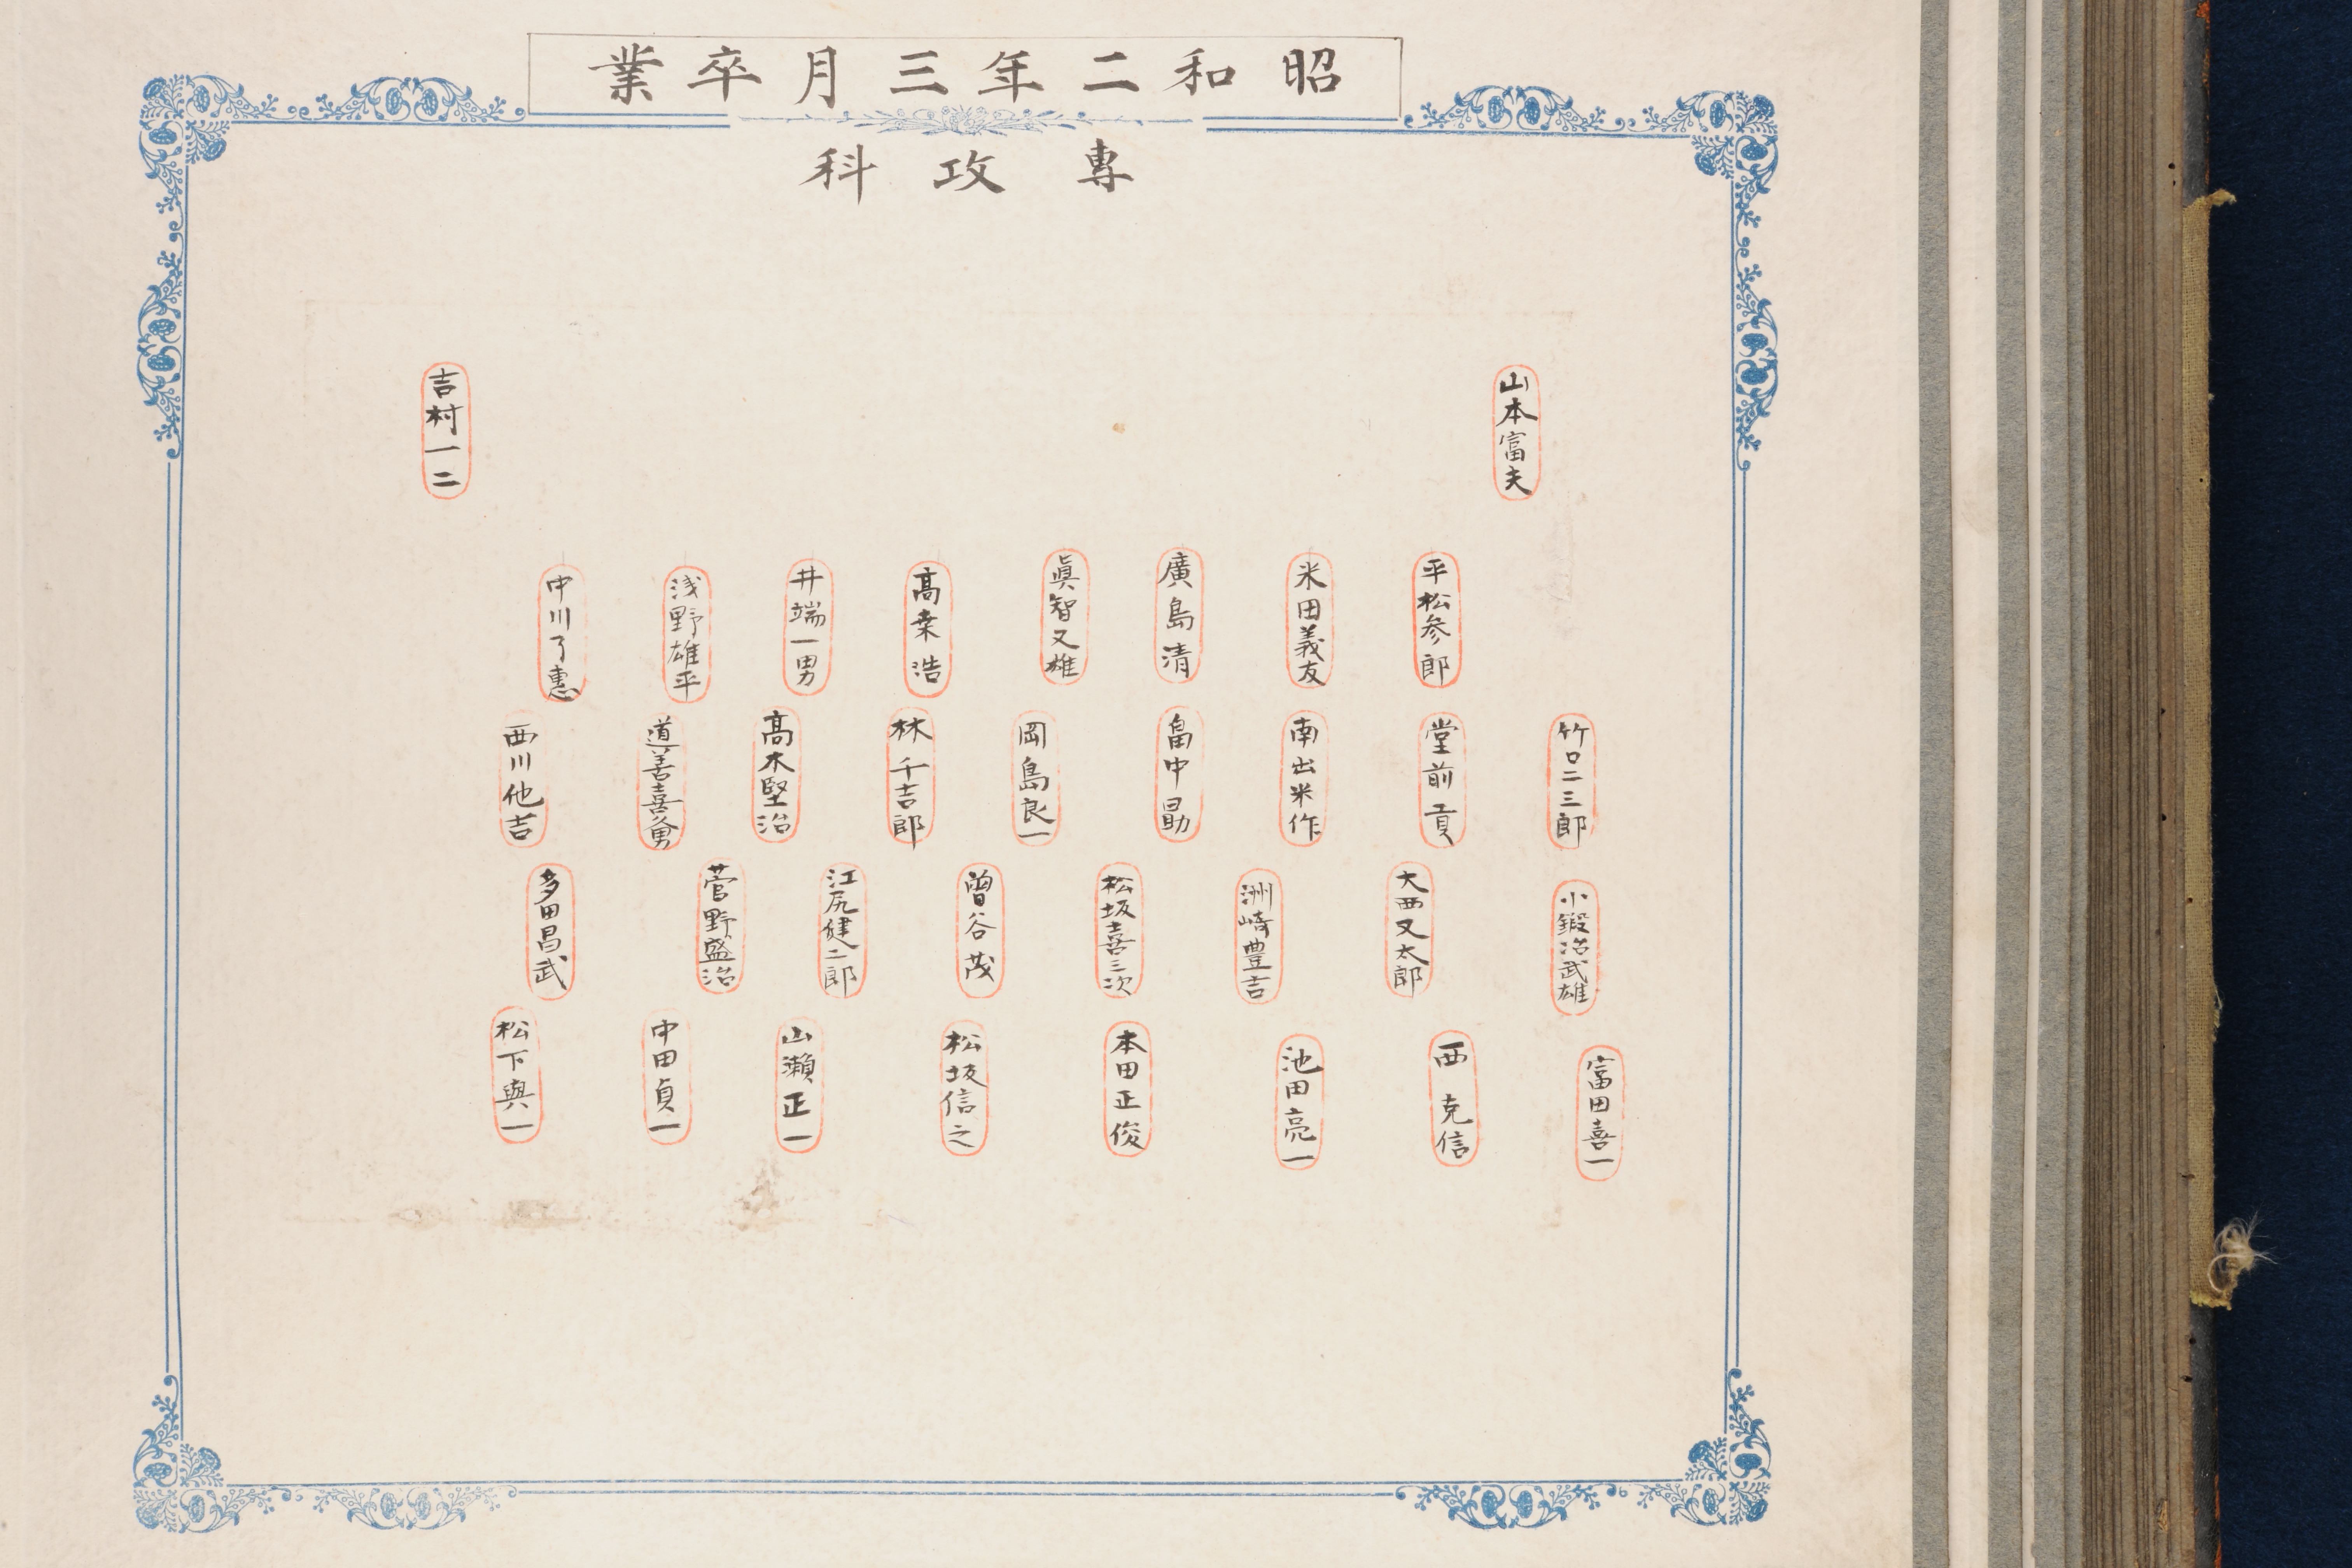 昭和二年三月卒業
專攻科
山本富夫
吉村一二
平松参郎
米田義友
廣島清
眞智又雄
高桒浩
井端一男
浅野雄平
中川了惠
竹口二三郎
堂前貢
南出米作
畠中勗
岡島良一
林千吉郎
高木堅治
道善喜勇
西川他吉
小鍛冶武雄
大西又太郎
洲崎豊吉
松坂喜三次
曽谷茂
江尻健二郎
菅野盛治
多田昌武
富田喜一
西克信
池田亮一
本田正俊
松坂信之
山瀬正一
中田貞一
松下與一